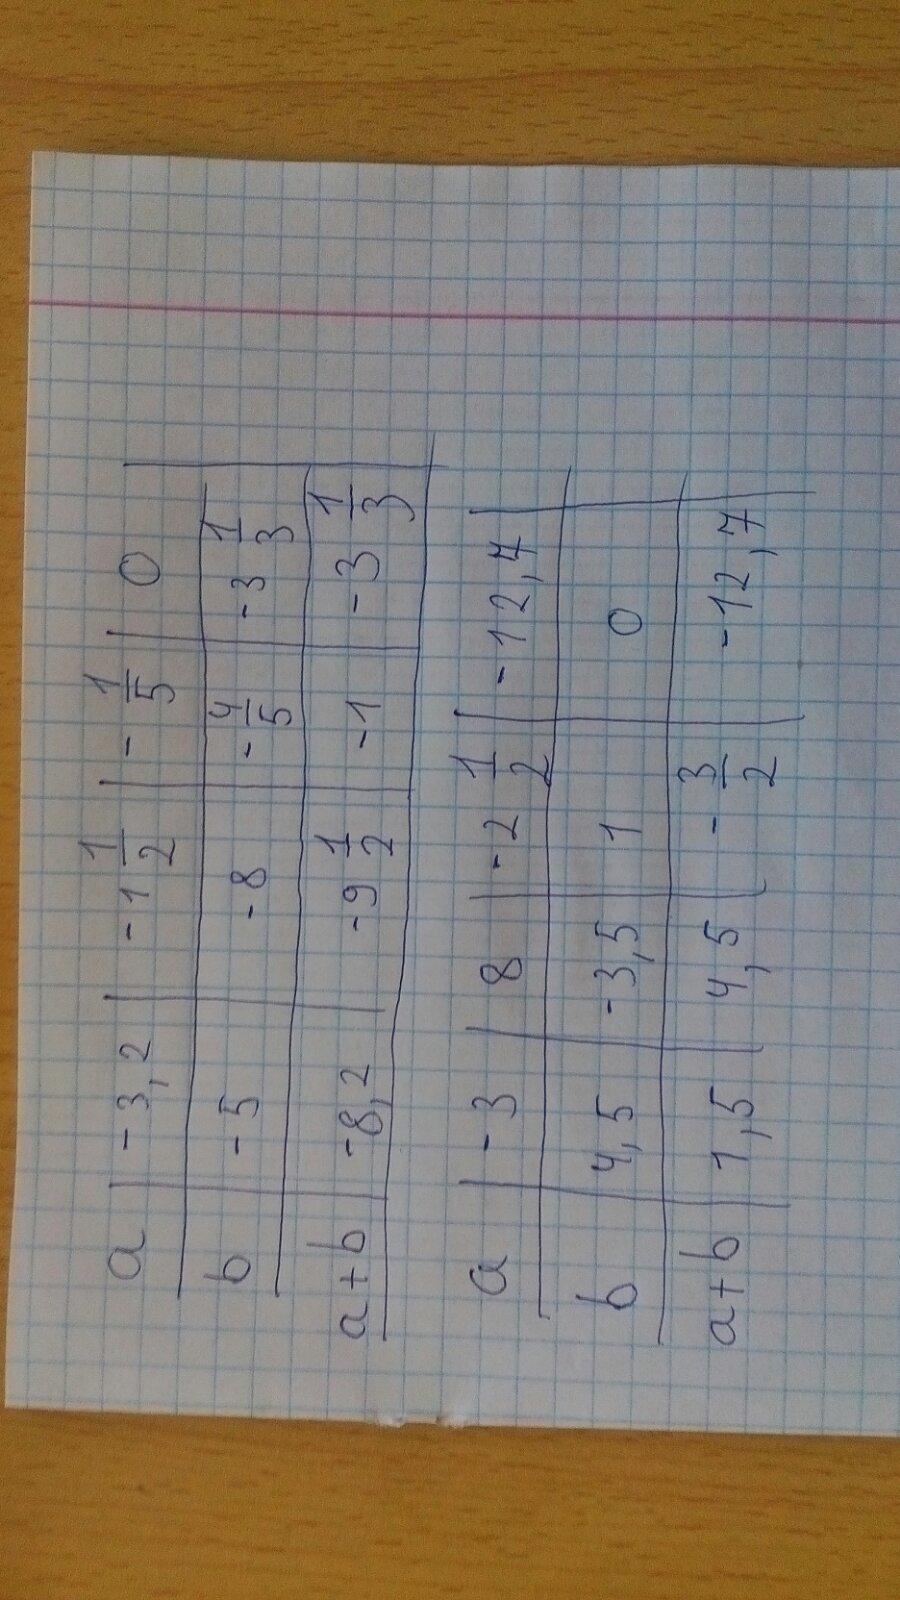 a | -3,2 | -1 1/2 | -1/5 | 0
b | -5 | -8 | -4/5 | -3 1/3
a+b | -8,2 | -9 1/2 | -1 | -3 1/3
a | -3 | 8 | -2 1/2 | -12,7
b | 4,5 | -3,5 | 1 | 0
a+b | 1,5 | 4,5 | -3/2 | -12,7